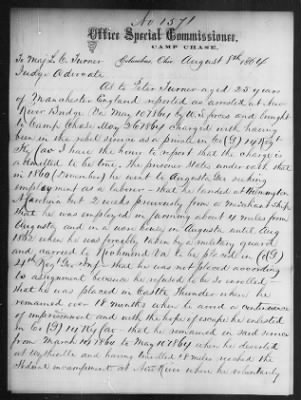 No 1571
Office Special Commissioner,
CAMP CHASE,
Columbus, Ohio August 8th 1864
To Maj L. C. Turner
Judge Advocate
As to Peter Turner aged 25 years
of Manchester England reported as arrested at New
River Bridge Va May 10 1864 by U.S. forces and brought
to Camp Chase May 26 1864 charged with having
been in the rebel service as a private in Co (G) 14 Regt
Ky Cav I have the honor to report that the charge is
admitted to be true. The prisoner states under oath that
in 1860 (November) he went to Augusta Ga seeking
employment as a laborer - that he landed at Wilmington
N Carolina but 2 weeks previously from a merchant ship
that he was employed in farming about 4 miles from
Augusta, and in a iron house in Augusta until Aug
1862 when he was forcibly taken by a military guard
and carried to Richmond Va to be placed in Co (G)
24th Regt Ga Inf - that he was not placed according
to assignment because he refused to be so enrolled -
that he was placed in Castle Thunder where he
remained over 18 months when to avoid a continuance
of imprisonment and with the hope of escape he enlisted
in Co (G) 14 Ky Cav - that he remained in said service
from March 10 1864 to May 10 1864 when he deserted
at Wytheville and having travelled 18 miles reached the
Federal encampment at New River when he voluntarily